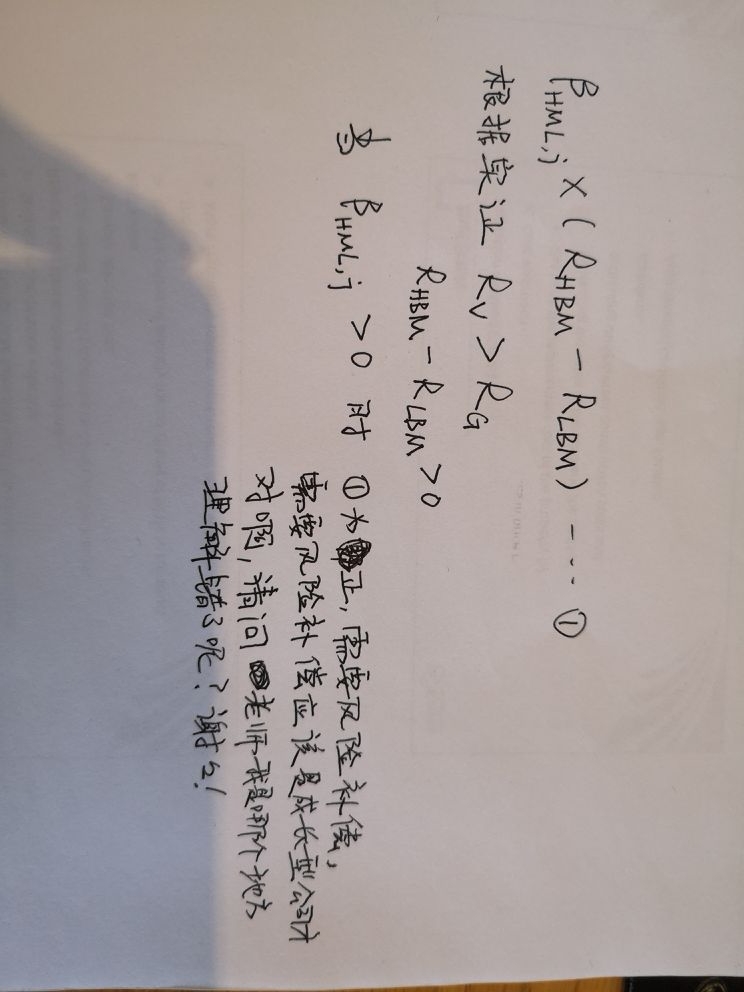 β_{HML,j} × (R_{HBM} − R_{LBM}) --- ①
根据实证 R_V > R_G
R_{HBM} − R_{LBM} > 0
当 β_{HML,j} > 0 时 ①为正, 需要风险补偿,
需要风险补偿应该是成长型公司才
对啊, 请问老师, 我是哪个地方
理解错了呢? 谢谢!